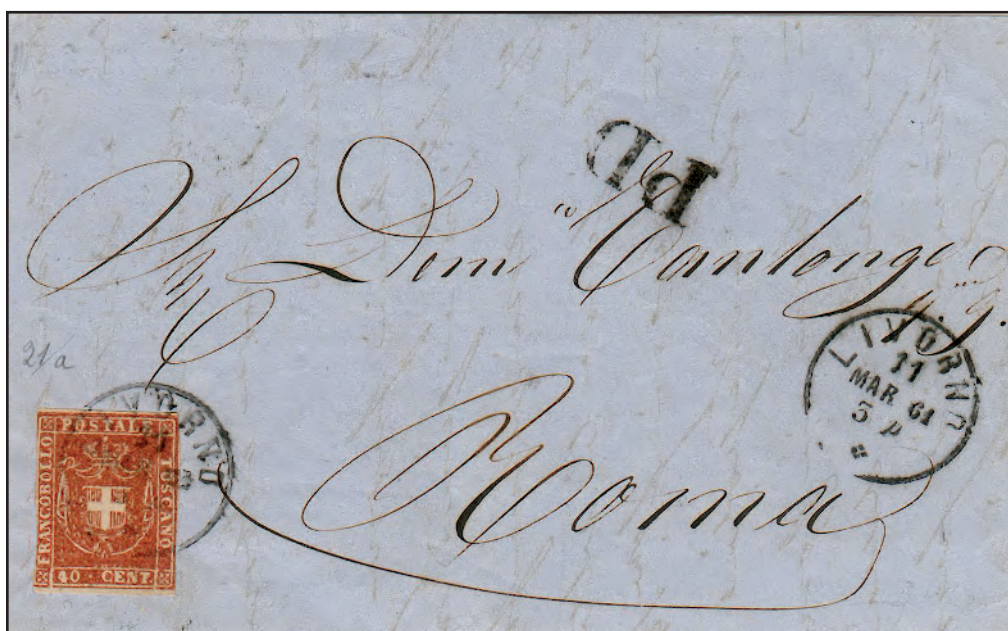 PD
Dom.co
21a
LIVORNO
11
MAR 61
5 P
Roma
LIVORNO
FRANCOBOLLO
POSTALE
TOSCANO
40 CENT.